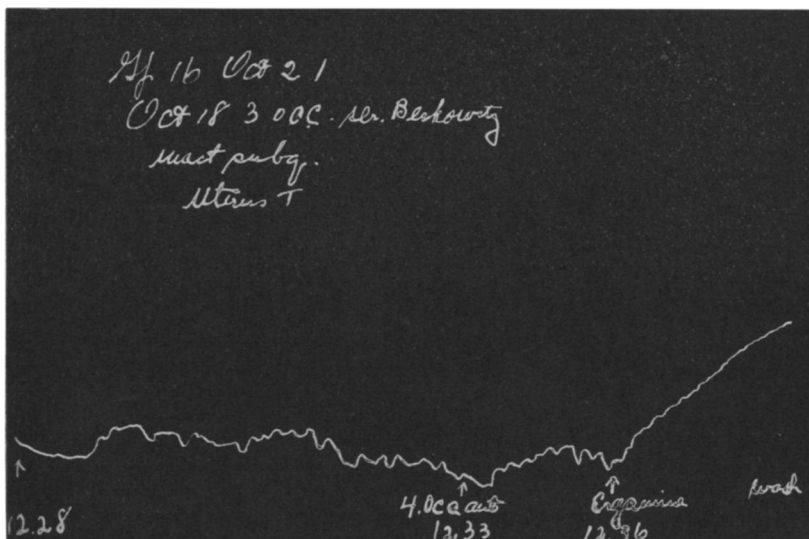 Oct 21
Oct 18 3 0cc. ser. Berkowitz
inact subq.
Uterus T
12.28
4.0cc auto
12.33
Ergamine
wash